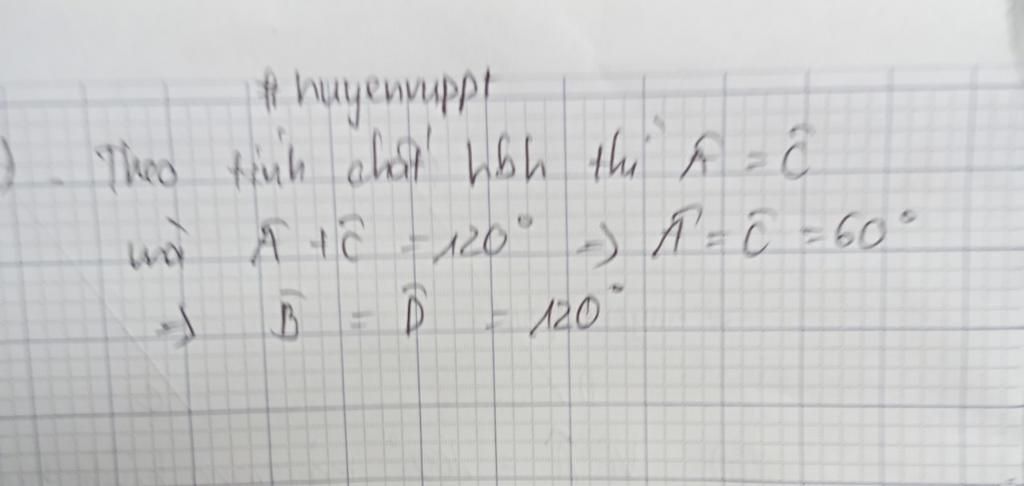 # huyenvuppt
). Theo tính chất hbh thì Â = Ĉ
mà Â + Ĉ = 120° => Â = Ĉ = 60°
=> B̂ = D̂ = 120°